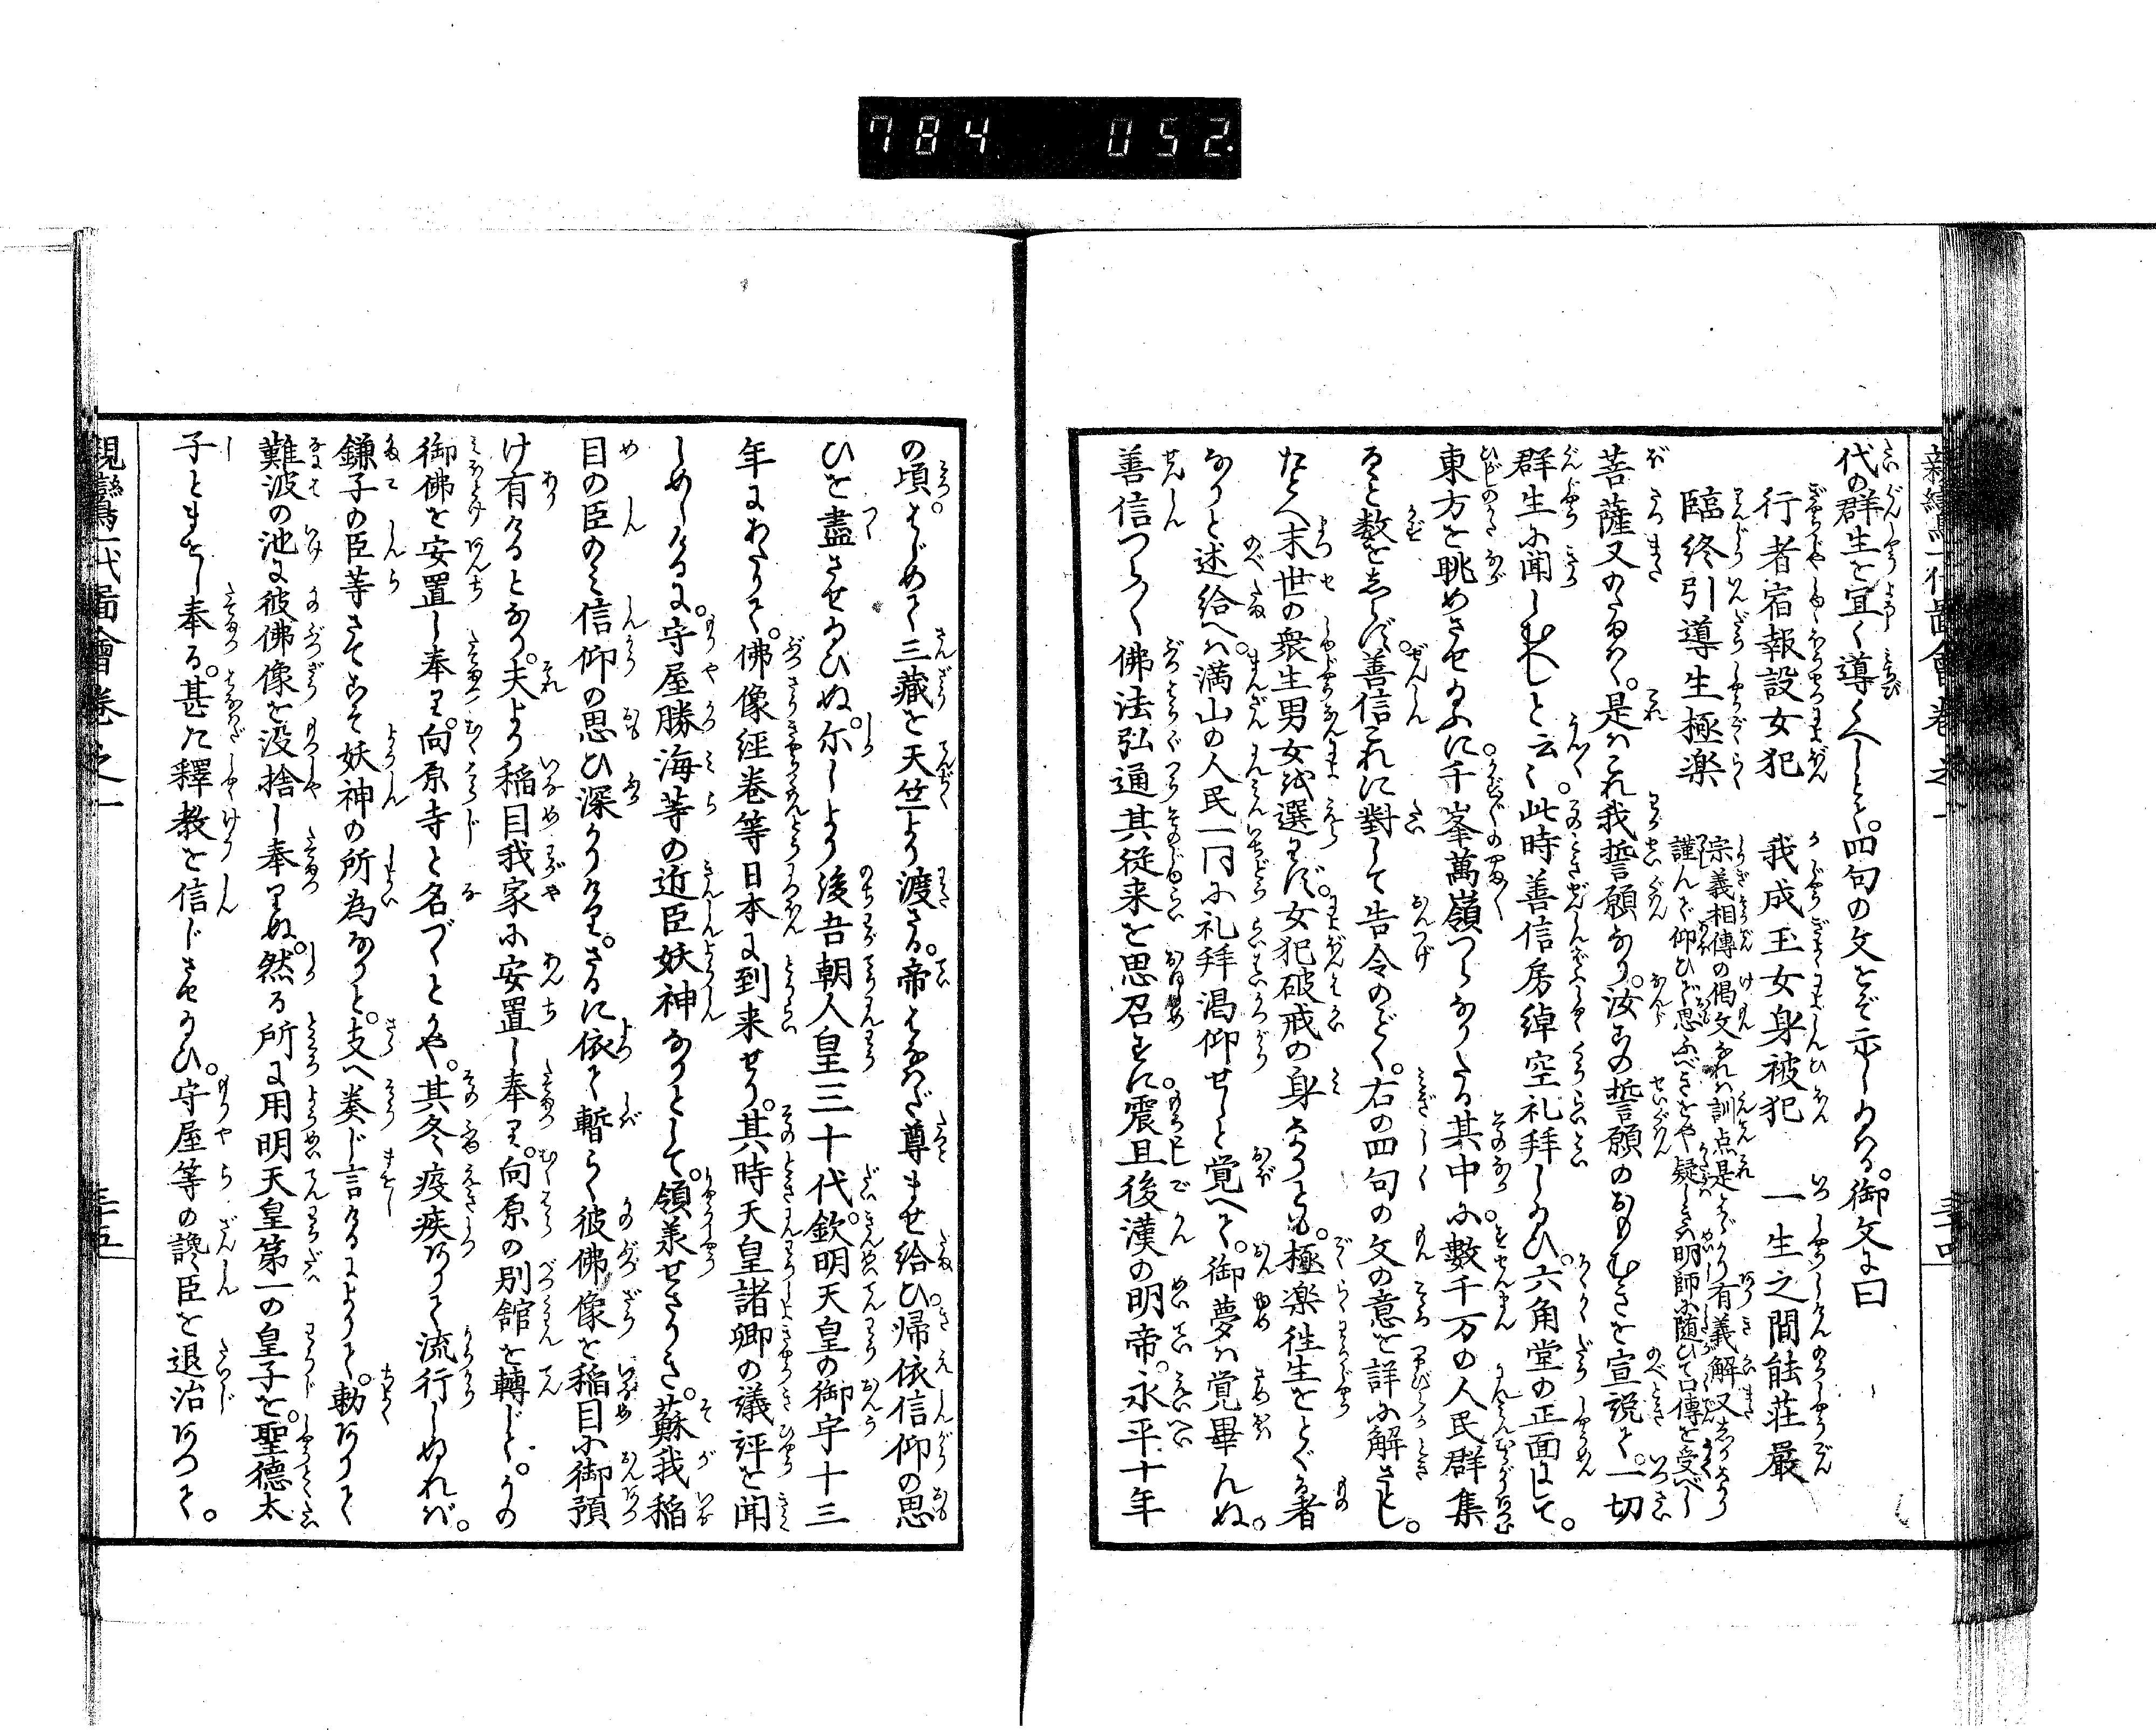 784 052.
代の群生を宜く導くべしとて。四句の文をぞ示し給ふる。御文に曰
行者宿報設女犯 我成玉女身被犯 一生之間能荘嚴
臨終引導生極楽
宗義相傳の偈文なれバ訓点是をはぶけり有義解又あり
謹んで仰ひで思ふべきをや疑しきハ明師に随ひて口傳を受べし
菩薩又のたまはく。是ハこれ我誓願なり。汝この誓願のおもむきを宣説て。一切
群生に聞しむべしと云々。此時善信房綽空礼拜し給ひ。六角堂の正面にして。
東方を眺めさせ給ふに。千峯萬嶺つらなりたる其中に。數千万の人民群集
ること数をしらず。善信これに對して告令のごとく。右の四句の文の意を詳に解さとし。
たとへ末世の衆生男女を選ばず。女犯破戒の身なりとも。極楽往生をとぐる者
なりと述給へバ。満山の人民一同に礼拜渇仰せしと覚へて。御夢ハ覚畢んぬ。
善信つら〱佛法弘通其従来を思召すに。震旦後漢の明帝。永平十年
の頃。はじめて三藏を天竺より渡さる。帝はなはだ尊ませ給ひ。帰依信仰の思
ひを盡させ給ひぬ。尓しより後吾朝人皇三十代。欽明天皇の御宇十三
年にあたりて。佛像經巻等日本に到来せり。其時天皇諸卿の議評を聞
しめしけるに。守屋勝海等の近臣妖神なりとして。領義せざりき。蘇我稲
目の臣のミ信仰の思ひ深かりけり。さるに依て暫らく彼佛像を稲目に御預
け有けるとなり。夫より稲目我家に安置し奉り。向原の別舘を轉じて。かの
御佛を安置し奉り。向原寺と名づくとかや。其冬疫疾ありて流行しぬれバ。
鎌子の臣等さてこそ妖神の所為なりと。支へ奏し言けるによりて。勅ありて
難波の池に彼佛像を没捨し奉りぬ。然る所に用明天皇第一の皇子を。聖德太
子とまをし奉る。甚だ釋教を信じさせ給ひ。守屋等の讒臣を退治ありて。
親鸞一代圖會巻之一